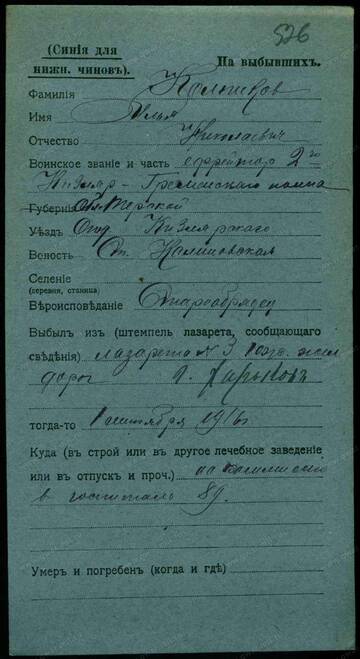 526
(Синія для нижн. чиновъ).
На выбывшихъ.
Фамилія Калашиков
Имя Илья
Отчество Николаевич
Воинское званіе и часть ефрейтор 2го
Кизляр-Гребенскаго полка
Губернія Обл. Терской
Уѣздъ Отд. Кизлярскаго
Волость Ст. Калиновская
Селеніе
(деревня, станица)
Вѣроисповѣданіе Старообрядец
Выбылъ изъ (штемпель лазарета, сообщающаго
свѣдѣнія) лазарета № 3 Юж. жел
дорог г. Харьковъ
тогда-то 1 сентября 1916 г
Куда (въ строй или въ другое лечебное заведеніе
или въ отпускъ и проч.) на комиссію
в госпиталь 89.
Умеръ и погребенъ (когда и гдѣ)